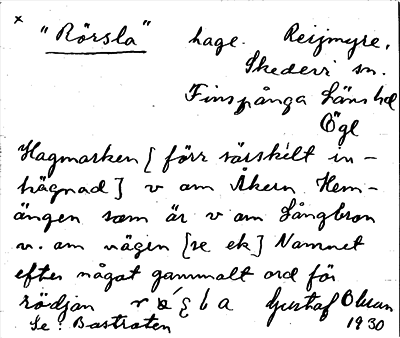 x "Rörsla" hage. Reijmyre,
Skedevi sn.
Finspånga Läns hd
Ögl
Hagmarken [förr särskilt in-
hägnad] v om Åkern Hem-
ängen som är v om Långbron
v. om vägen [se ek] Namnet
efter något gammalt ord för
rödjan Gustaf Olsson
Se: Bastraten 1930